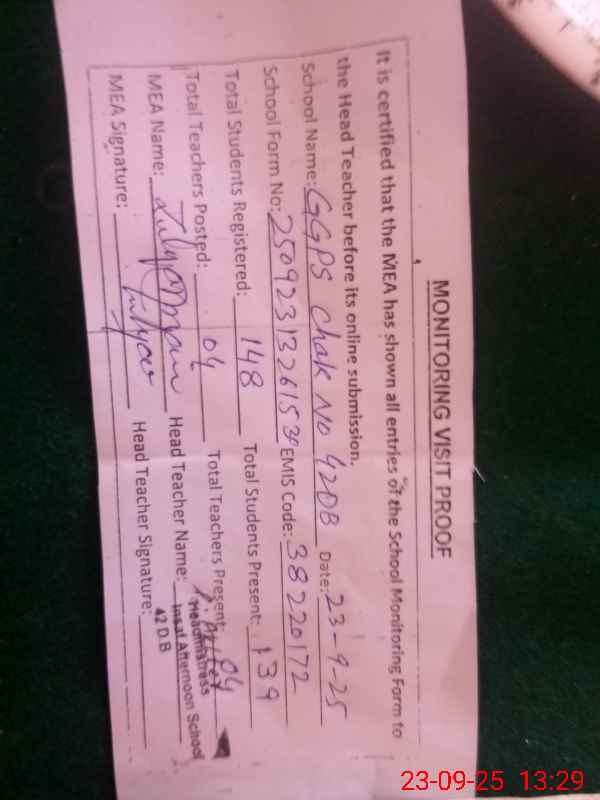 MONITORING VISIT PROOF
It is certified that the MEA has shown all entries of the School Monitoring Form to
the Head Teacher before its online submission.
School Name: GGPS Chak No 42DB Date: 23-9-25
School Form No: EMIS Code: 38220172
Total Students Registered: 148 Total Students Present: 139
Total Teachers Posted: 04 Total Teachers Present: 04
MEA Name: Head Teacher Name: Headmistress
Insaf Afternoon School
MEA Signature: Head Teacher Signature: 42 D.B
23-09-25 13:29